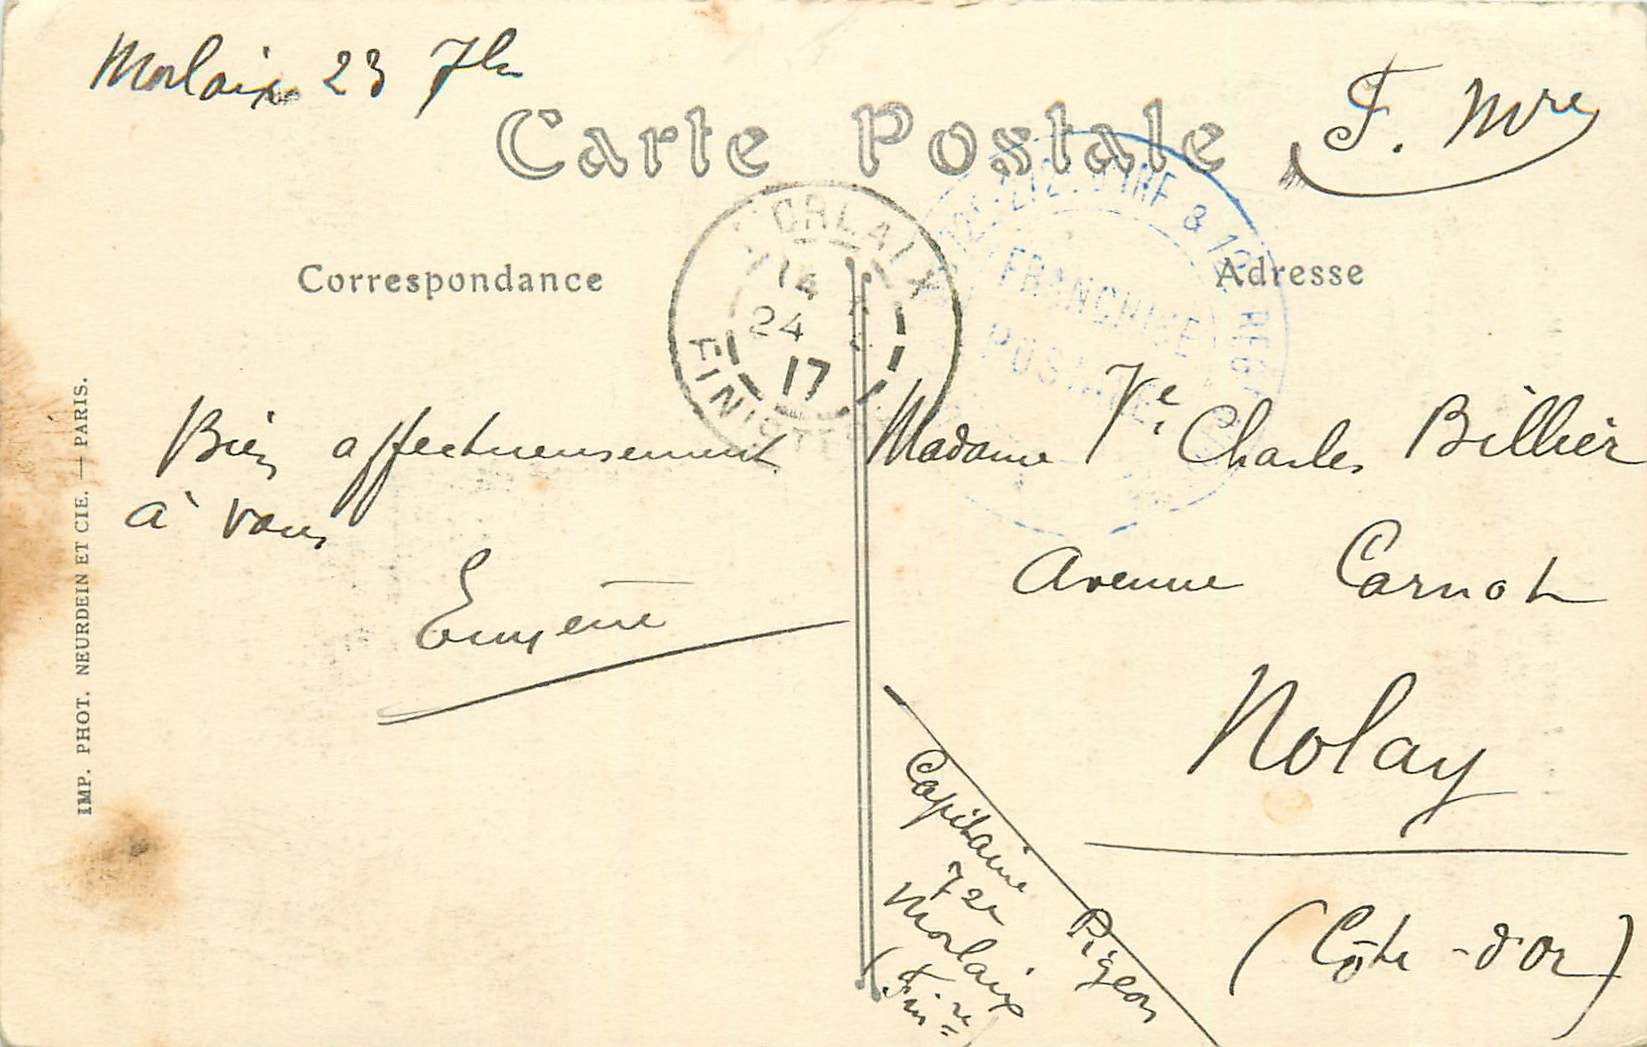 Morlaix 23 7bre
F. Mre
Carte Postale
Correspondance
Adresse
MORLAIX
14
24
17
FINISTE
FRANCHISE
POSTALE
Bien affectueusement
à vous
Eugène
Madame Ve Charles Billier
Avenue Carnot
Nolay
(Côte-d'Or)
Capitaine Pigeon
72e
Morlaix
(Finre
IMP. PHOT. NEURDEIN ET CIE. — PARIS.